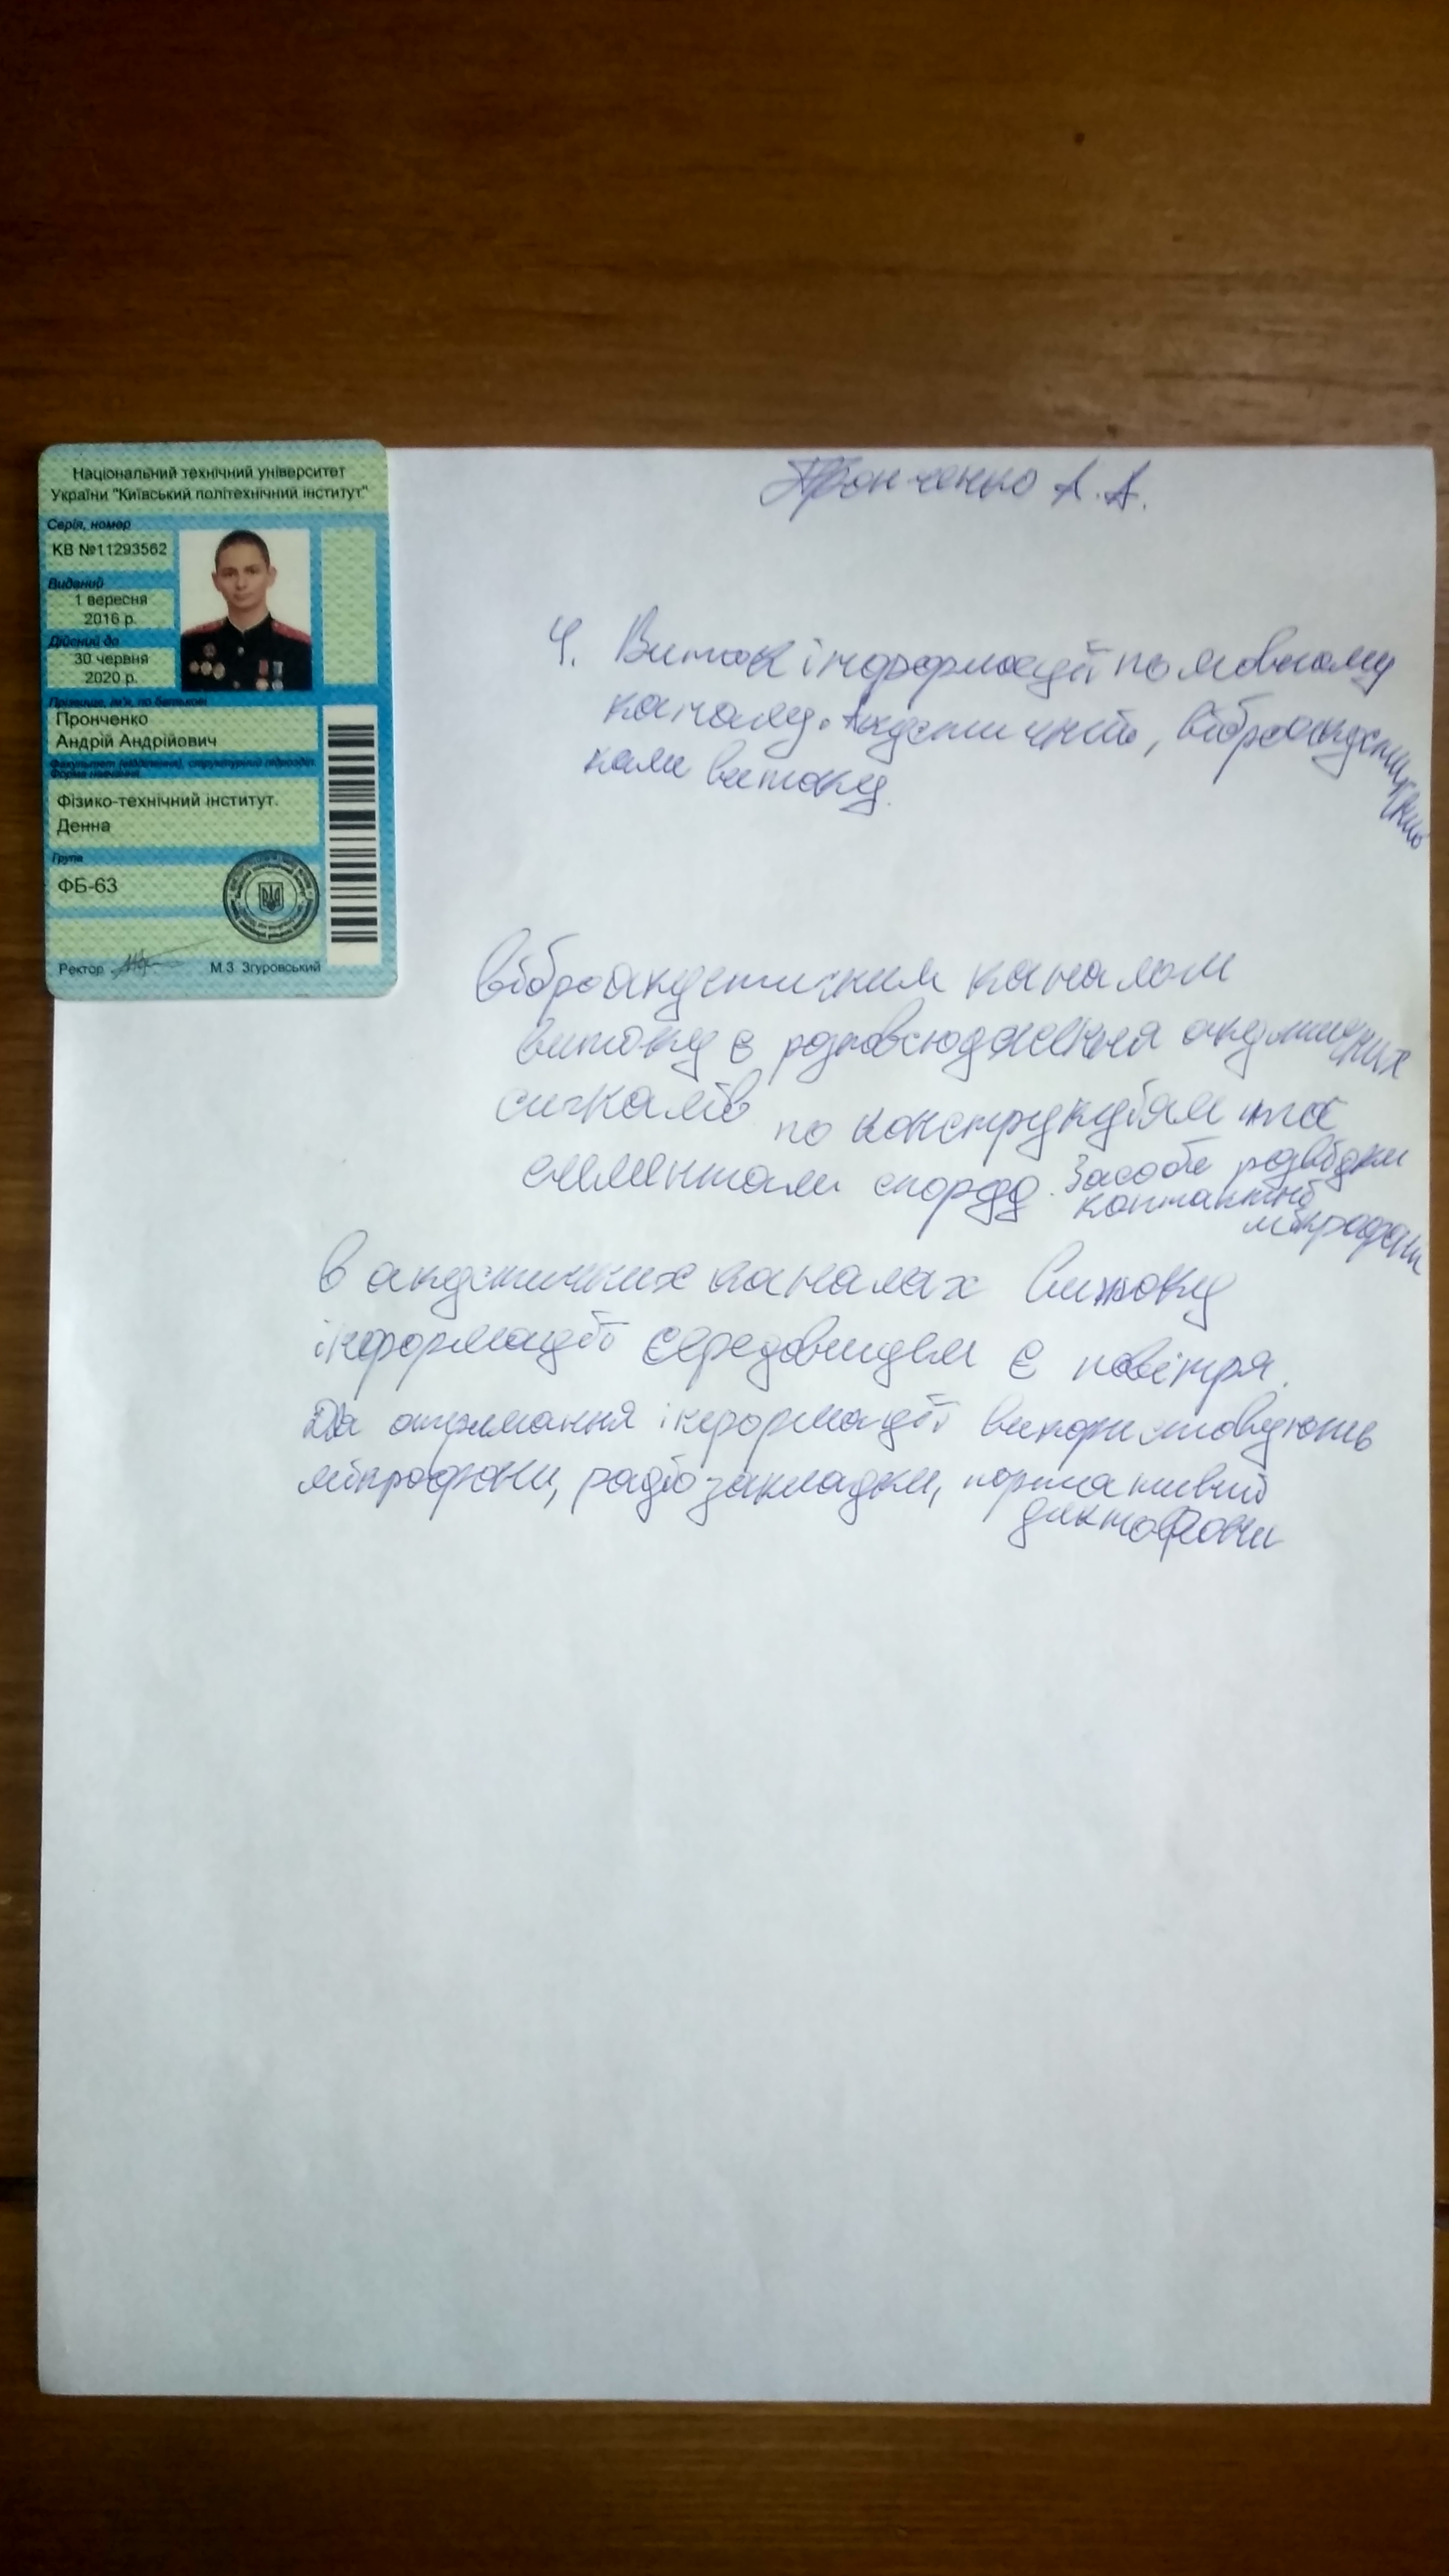 Національний технічний університет
України "Київський політехнічний інститут"
Серія, номер
КВ №11293562
Виданий
1 вересня
2016 р.
Дійсний до
30 червня
2020 р.
Прізвище, ім'я, по батькові
Пронченко
Андрій Андрійович
Факультет (відділення), структурний підрозділ.
Форма навчання
Фізико-технічний інститут.
Денна
Група
ФБ-63
Ректор М.З. Згуровський
Пронченко А.А.
4. Виток інформації по мовному
каналу. Акустичний, віброакустичний
канали витоку.
Віброакустичним каналом
витоку є розповсюдження акустичних
сигналів по конструкціям та
елементам споруд. Засоби розвідки
контактні
мікрофони
В акустичних каналах витоку
інформації середовищем є повітря.
Для отримання інформації використовують
мікрофони, радіозакладки, портативні
диктофони